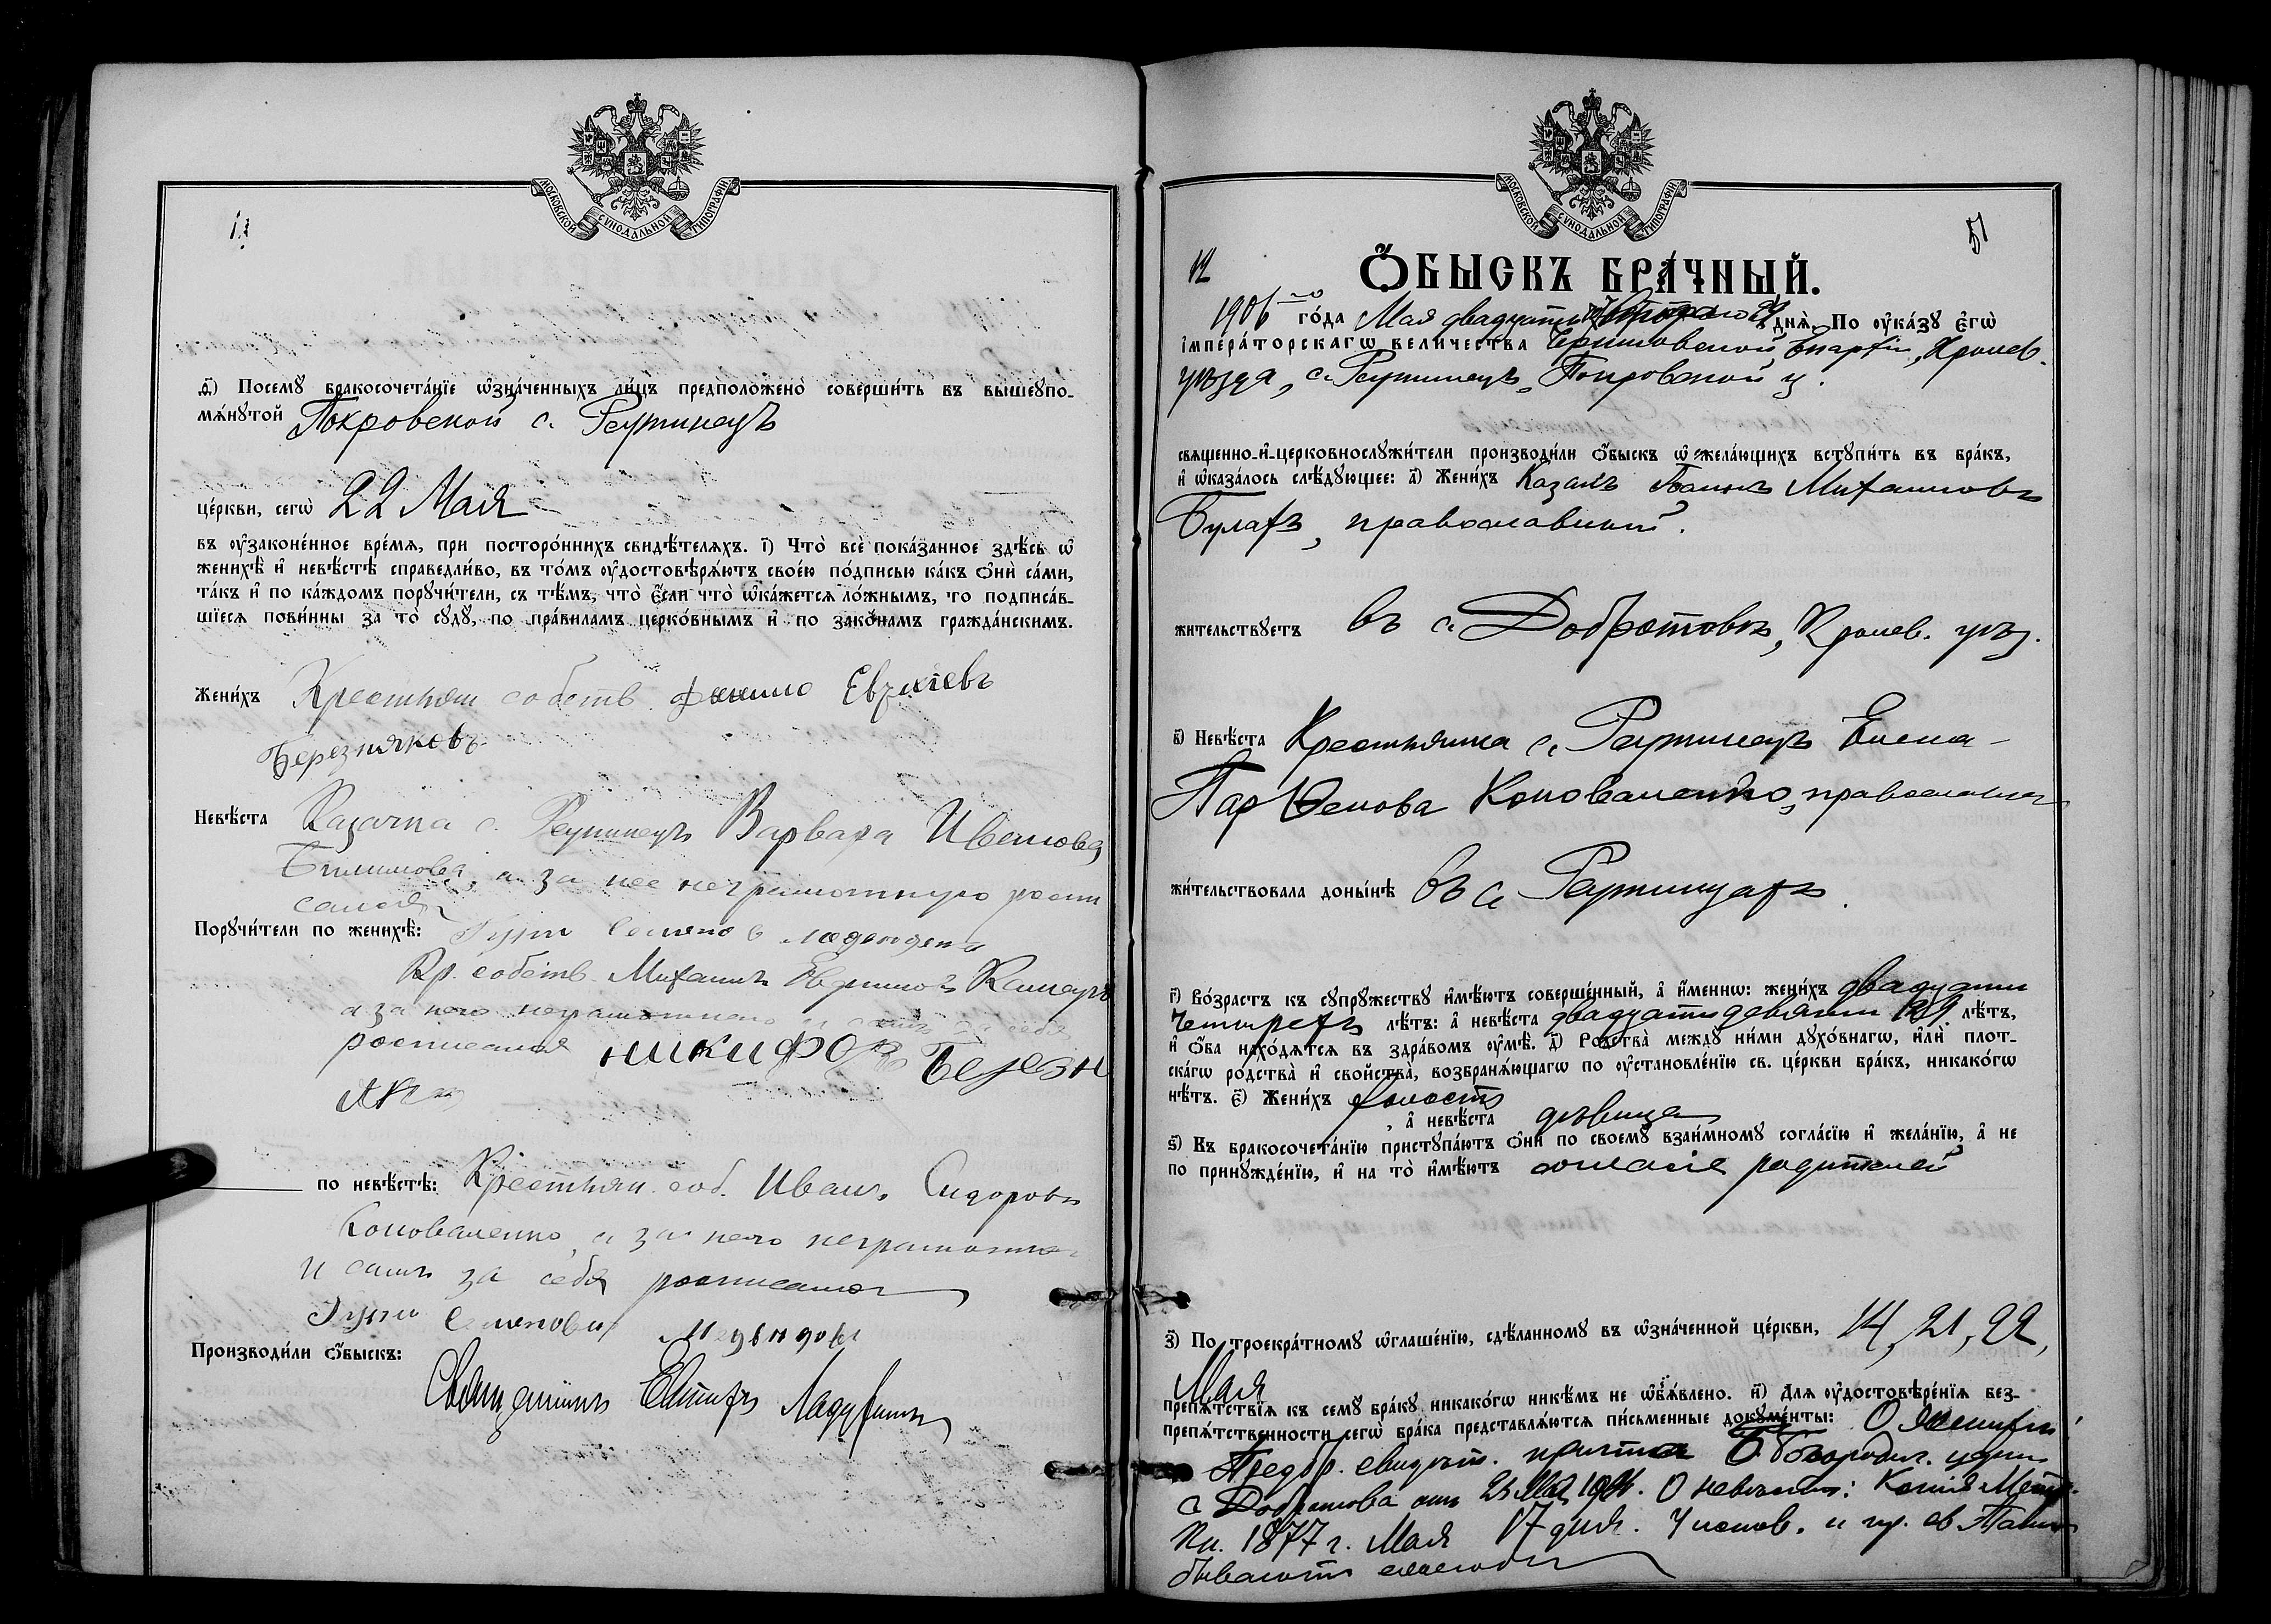 МОСКОВСКОЙ СѴНОДАЛЬНОЙ ТИПОГРАФІИ
д҃) Посемꙋ̀ бракосочета́нїе ѡ҆зна́ченныхъ ли́цъ предположено̀ соверши́ть въ вышеꙋпо-
мѧ́нꙋтой Покровской с. Реутинецъ
це́ркви, сегѡ̀ 22 Мая
въ ᲂу҆законе́нное вре́мѧ, при посторо́ннихъ свидѣ́телѧхъ. і҃) Что̀ всѐ пока́занное здѣ́сь ѡ҆
женихѣ̀ и҆ невѣ́стѣ справедли́во, въ то́мъ ᲂу҆достовѣрѧ́ютъ свое́ю по́дписью ка́къ ѻ҆нѝ са́ми,
та́къ и҆ по ка́ждомъ порꙋчи́тели, съ тѣ́мъ, что̀ є҆́сли что̀ ѡ҆ка́жетсѧ ло́жнымъ, то подписа́в-
шїесѧ пови́нны за то̀ сꙋдꙋ̀, по пра́виламъ церко́внымъ и҆ по зако́намъ гражда́нскимъ.
Жени́хъ Крестьян собств.
Березняковъ
Невѣ́ста Казачка с. Реутинецъ Варвара Иванова
а за нее неграмотную роспи
сался
Порꙋчи́тели по женихѣ̀:
Кр. собств. Михаилъ
а за него неграмотнаго и самъ за себя
росписался никифоръ Березн
яко
по невѣ́стѣ: Крестьян. соб. Иванъ Сидоровъ
Коноваленко, а за него неграмотна
и самъ за себя росписался
Произво́дили ѻ҆́быскъ:
Священникъ Евтихъ
МОСКОВСКОЙ СѴНОДАЛЬНОЙ ТИПОГРАФІИ
51
12
Ѻ҆́БЫСКЪ БРА́ЧНЫЙ.
1906 го го́да Мая двадцать второго 22 днѧ̀. По ᲂу҆ка́зꙋ є҆гѡ̀
і҆мпера́торскагѡ вели́чества Черниговской Епархіи, Кролев.
уѣзда, с. Реутинецъ, Покровской ц.
свѧщенно-и҆-церковнослꙋжи́тели производи́ли ѻ҆́быскъ ѡ҆ жела́ющихъ встꙋпи́ть въ бра́къ,
и҆ ѡ҆каза́лось слѣ́дꙋющее: а҃) Жени́хъ Казакъ Іоаннъ Михаиловъ
Булахъ, православный.
жи́тельствꙋетъ въ с. Добротовѣ, Кролев. уѣз.
в҃) Невѣ́ста Крестьянка с. Реутинецъ Елена
Парѳенова Коноваленко, православная
жи́тельствовала доны́нѣ въ с. Реутинцахъ.
г҃) Во́зрастъ къ сꙋпрꙋ́жествꙋ и҆мѣ́ютъ соверше́нный, а҆ и҆́менно: жени́хъ двадцати
четырехъ лѣ́тъ: а҆ невѣ́ста двадцати девяти 29 лѣ́тъ,
и҆ ѻ҆́ба нахо́дѧтсѧ въ здра́вомъ ᲂу҆мѣ̀. д҃) Родства̀ междꙋ̀ ни́ми дꙋхо́внагѡ, и҆лѝ плот-
ска́гѡ родства̀ и҆ сво́йства, возбранѧ́ющагѡ по ᲂу҆становле́нїю св. це́ркви бра́къ, никако́гѡ
нѣ́тъ. є҃) Жени́хъ холостъ
, а҆ невѣ́ста дѣвица
ѕ҃) Въ бракосочета́нїю пристꙋпа́ютъ ѻ҆нѝ по своемꙋ̀ взаи́мномꙋ согла́сїю и҆ жела́нїю, а҆ не
по принꙋжде́нїю, и҆ на то̀ и҆мѣ́ютъ согласіе родителей
з҃) По троекра́тномꙋ ѡ҆глаше́нїю, сдѣ́ланномꙋ въ ѡ҆зна́ченной це́ркви, 14, 21, 22,
Мая
препѧ́тствїѧ къ семꙋ̀ бра́кꙋ никако́гѡ никѣ́мъ не ѡ҆б̾ѧ́влено. и҃) Длѧ ᲂу҆достовѣре́нїѧ без-
препѧ́тственности сегѡ̀ бра́ка представлѧ́ютсѧ пи́сьменные докꙋме́нты: О женихѣ:
Предбр. свидѣт. причта Р. Богородич. церкви
с. Добротова отъ 21 Мая 1906. О невѣстѣ: Копія Метр.
Кн. 1877 г. Мая 17 дня. У исповѣ. и пр. св. Таинъ
бываютъ ежегодно